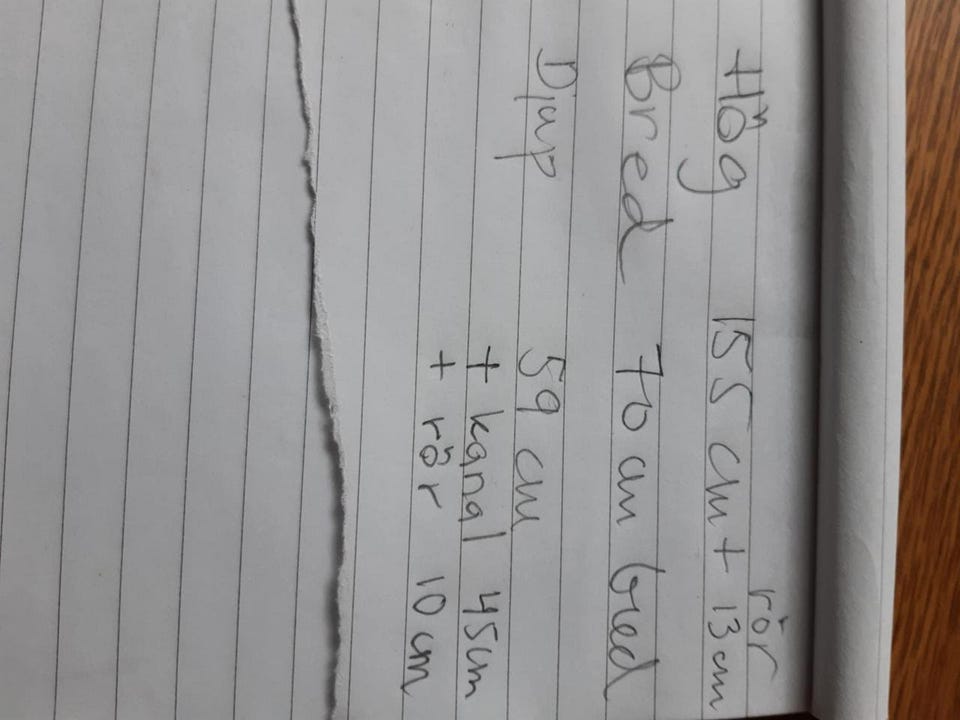 rör
Hög 155 cm + 13 cm
Bred 70 cm bred
Djup 59 cm
+ kanal 45 cm
+ rör 10 cm